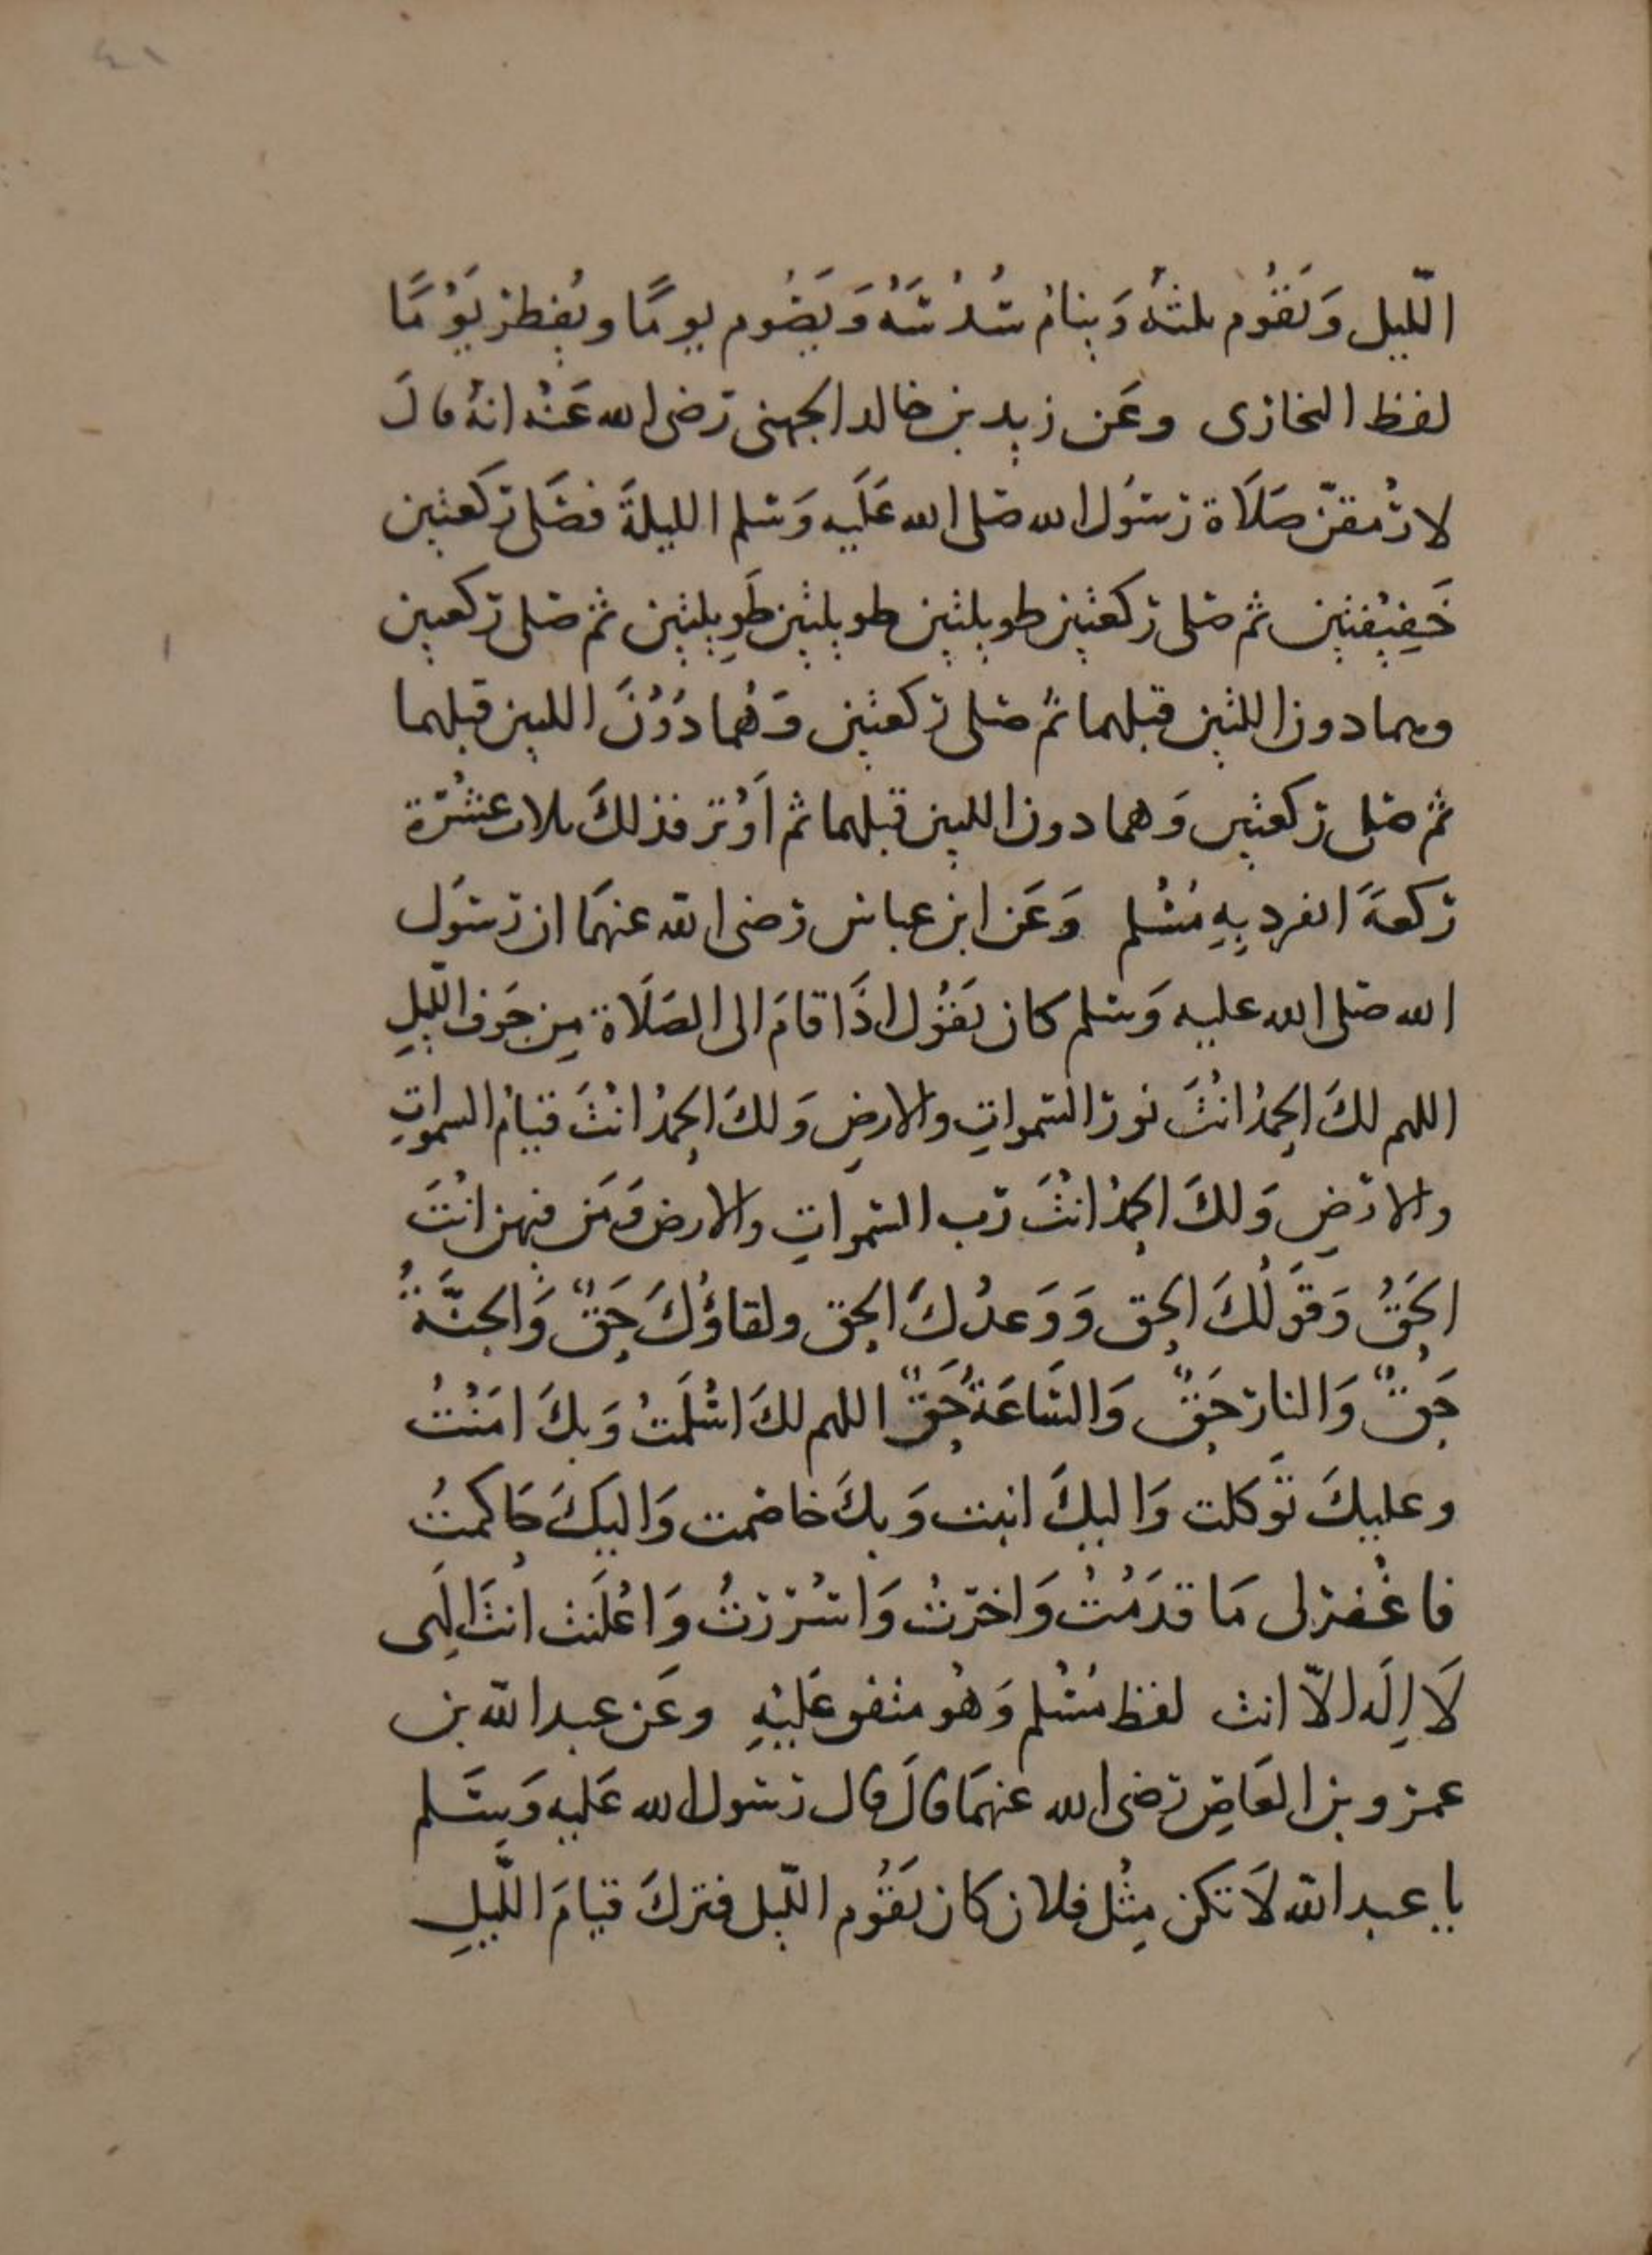 ٤١
اللّيل وَيَقُوم ثلثهُ وَينامُ سُدُسَهُ وَيَصُوم يومًا ويُفطر يَوْمًا
لفظ البخارى وعَن زيد بن خالد الجهنى رضى الله عَنْه انهُ قال
لارْمقنّ صَلَاة رسُول الله صَلى الله عَلَيه وَسَلم الليلةَ فصَلى ركعتين
خَفِيْفتين ثم صَلى ركعتين طويلتين طويلتين طَوِيلتين ثم صَلى ركعتين
وهما دون اللتين قبلهما ثم صَلى ركعتين وَهُما دَوُنَ اللتين قبلهما
ثم صَلى ركعتين وَهما دون اللتين قبلهما ثم اَوْتر فذلكَ ثلاث عشْرَة
ركعةً انفرد بِهِ مُسْلم وَعَن ابن عباس رضى الله عنهمَا ان رسُول
الله صَلى الله عليه وَسَلم كان يَقُول اذَا قامَ الى الصَلَاة مِن جَوف اللّيلِ
اللهم لكَ الحمدُ انْتَ نورُ السَمواتِ والارضِ وَلكَ الحمدُ انْتَ قيامُ السمواتِ
والارضِ وَلكَ الحمدُ انْتَ رَب السَمواتِ والارض وَمَن فيهن انْتَ
الحَقُّ وَقَولُكَ الحق وَوَعدُكَ الحق ولقاؤُكَ حَقٌّ وَالجنَّةُ
حَقٌّ وَالنار حَقٌّ وَالسَّاعَةُ حَقٌّ اللهم لكَ اسْلَمتُ وَبكَ امَنْتُ
وعليكَ تَوكلت وَاليكَ انبت وَبكَ خاصَمت وَاليكَ حَاكمتُ
فاغْفر لى مَا قدَمْتُ وَاخرّتُ وَاسْرَرتُ وَاعْلَنت انتَ الَهِى
لَا اِلَه الاّ انت لفظ مُسْلم وَهُو متفق عَليْهِ وعَن عبد الله بن
عمرو بن العَاصِ رضى الله عنهمَا قالَ قال رسُول الله عَليه وَسَلم
يا عبد الله لَا تكن مِثْل فلان كان يَقُوم اللّيل فتركَ قيامَ اللّيلِ